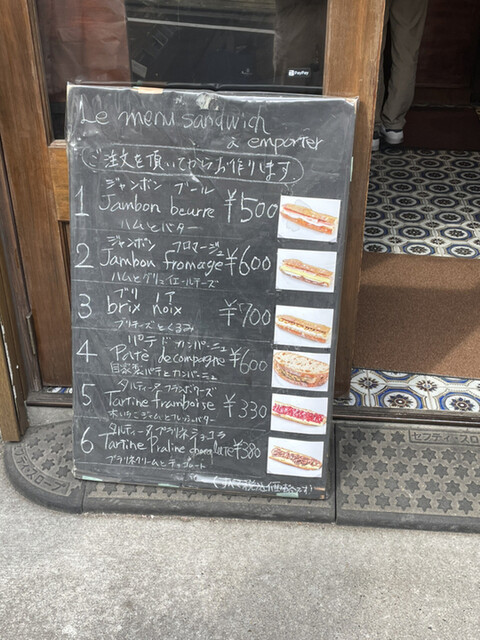 PayPay
Le menu sandwich
à emporter
ご注文を頂いてからお作りします
ジャンボン ブール
1 Jambon beurre ¥500
ハムとバター
ジャンボン フロマージュ
2 Jambon fromage ¥600
ハムとグリュイエールチーズ
ブリ ノア
3 brix noix ¥700
ブリチーズとくるみ
パテ ド カンパーニュ
4 Patè de campagne ¥600
自家製パテ ド カンパーニュ
タルティーヌ フランボワーズ
5 Tartine framboise ¥330
木いちごジャムとフレッシュバター
タルティーヌ プラリネ ショコラ
6 Tartine Praline chocolate ¥380
プラリネクリームとチョコレート
(すべて税込価格です)
セーフティースロ